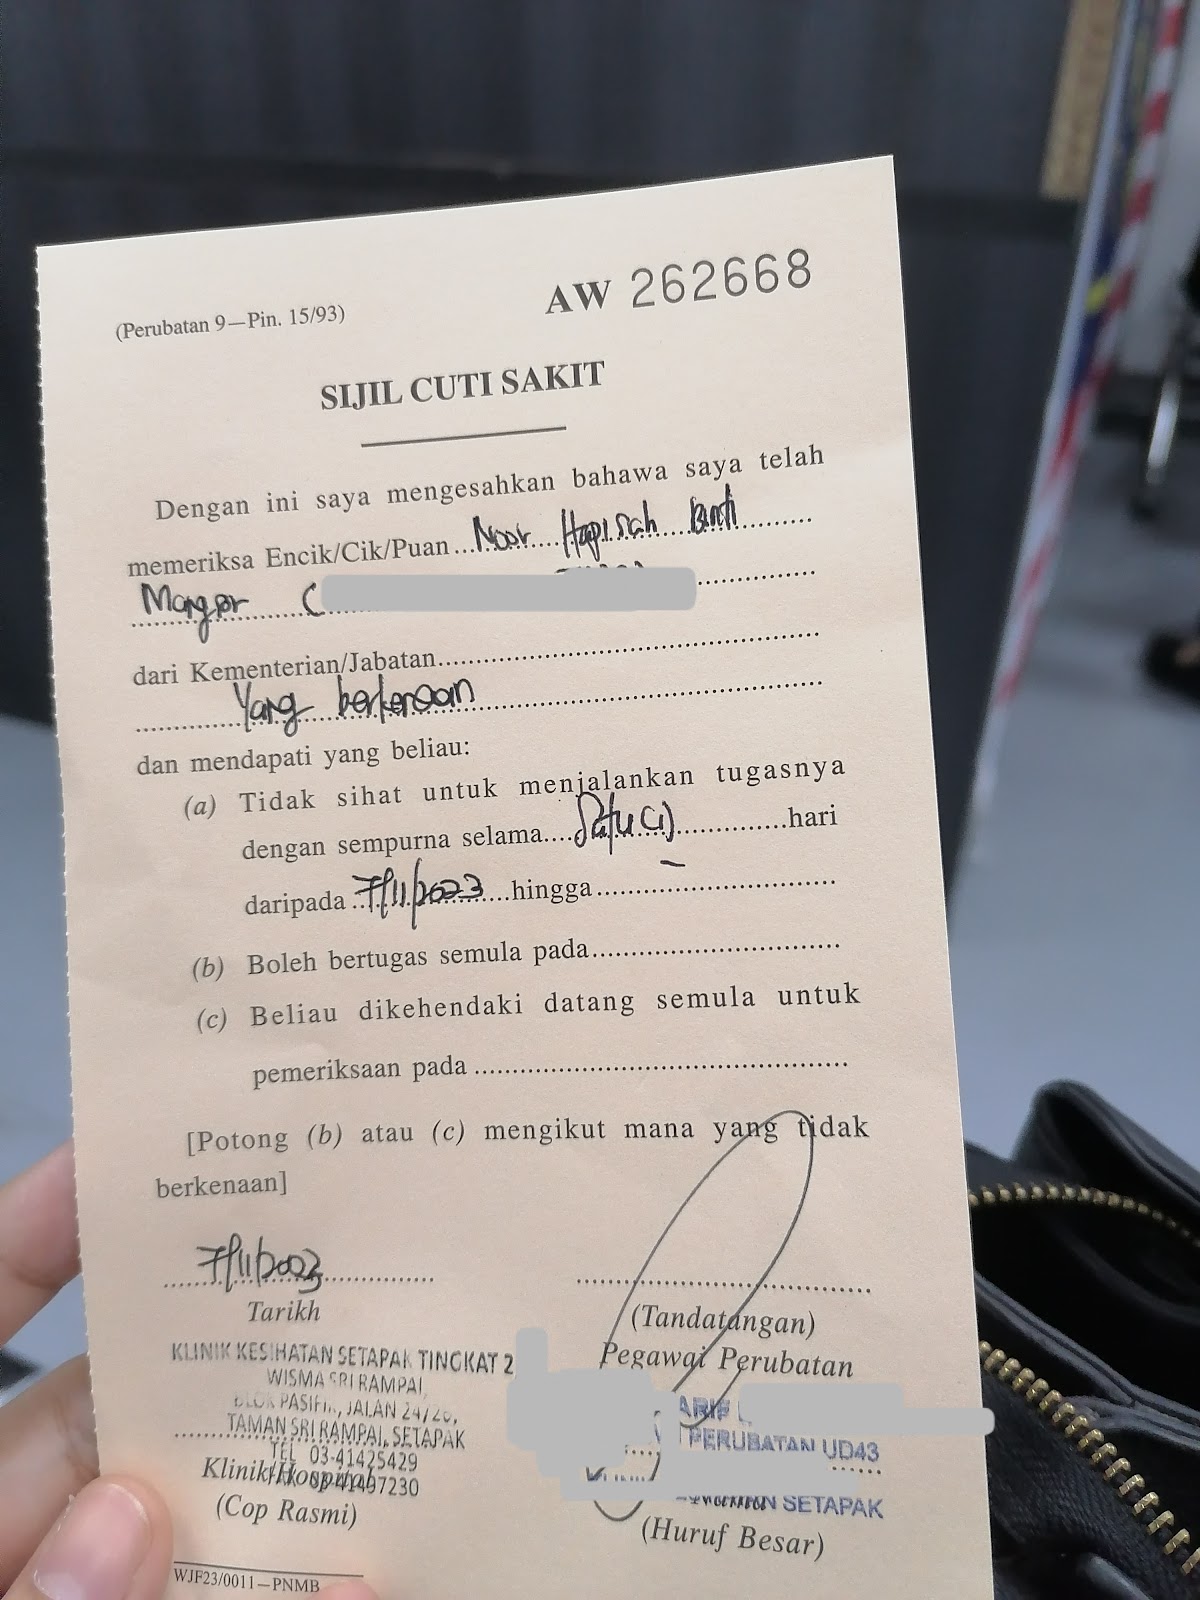 (Perubatan 9—Pin. 15/93)
AW 262668
SIJIL CUTI SAKIT
Dengan ini saya mengesahkan bahawa saya telah
memeriksa Encik/Cik/Puan...Noor Hapisah Binti
Mangsor (
dari Kementerian/Jabatan
Yang berkenaan
dan mendapati yang beliau:
(a) Tidak sihat untuk menjalankan tugasnya
dengan sempurna selama....Satu (1)....hari
daripada 7/11/2023 hingga
(b) Boleh bertugas semula pada
(c) Beliau dikehendaki datang semula untuk
pemeriksaan pada
[Potong (b) atau (c) mengikut mana yang tidak
berkenaan]
7/11/2023
Tarikh
KLINIK KESIHATAN SETAPAK TINGKAT 2
WISMA SRI RAMPAI
BLOK PASIFIK, JALAN 24/26,
TAMAN SRI RAMPAI, SETAPAK
TEL 03-41425429
Klinik/Hospital
(Cop Rasmi)
(Tandatangan)
Pegawai Perubatan
ARIF
PERUBATAN UD43
SETAPAK
(Huruf Besar)
WJF23/0011—PNMB